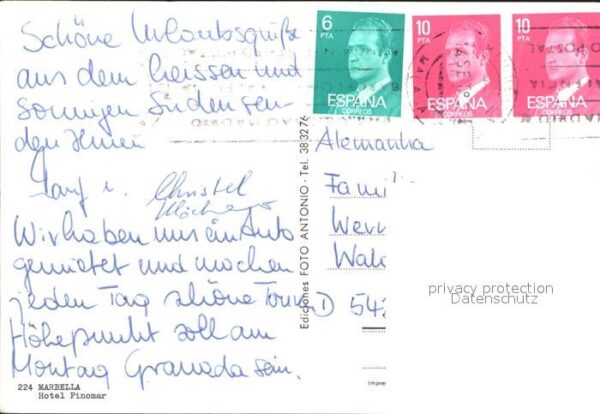 Schöne Urlaubsgrüße
aus dem heissen und
sonnigen Süden sen-
den Ihnen
Christel
Wir haben uns ein Auto
gemietet und machen
jeden Tag schöne Touren
Höhepunkt soll am
Montag Granada sein.
224 MARBELLA
Hotel Pinomar
Ediciones FOTO ANTONIO - Tel. 383276
6
PTA
ESPAÑA
CORREOS
10
PTA
ESPAÑA
CORREOS
10
PTA
ESPAÑA
CORREOS
Alemanha
Fami
Wern
Wal
D 54
privacy protection
Datenschutz
Impre